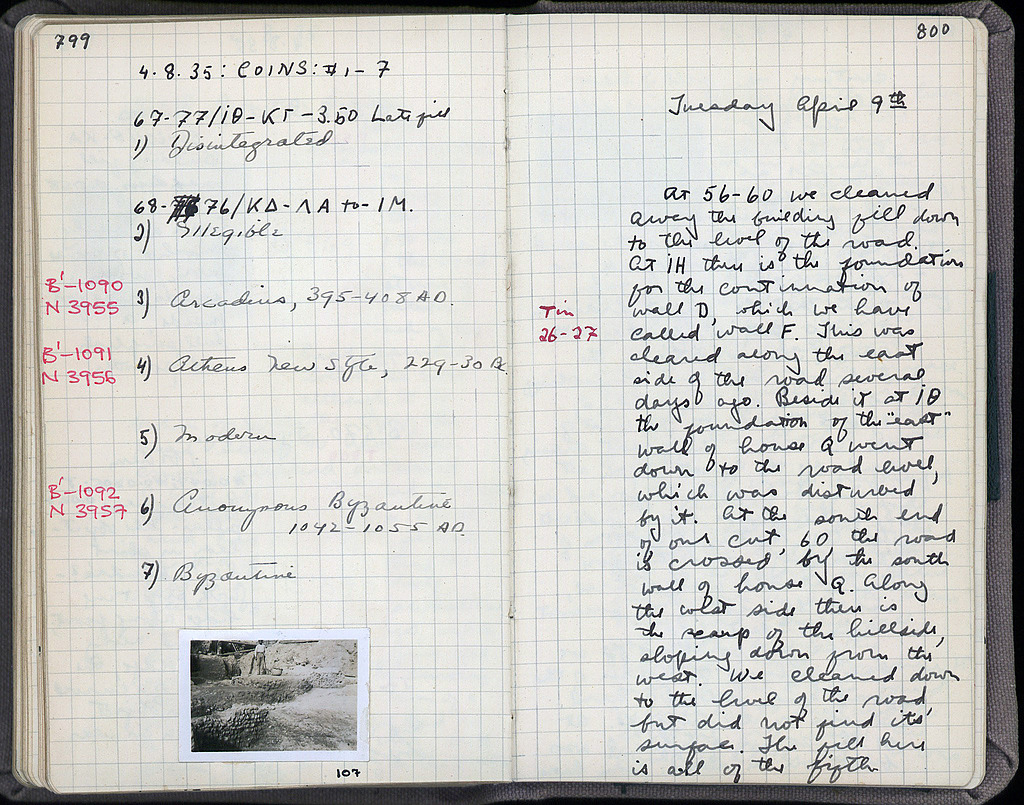 799
4.8.35: COINS: #1-7
67-77/ΙΘ-ΚΓ-3.50 Late fill
1) Disintegrated
68-76/ΚΔ-ΛΑ to -1M.
2) Illegible
B'-1090
N 3955
3) Arcadius, 395-408 AD.
B'-1091
N 3956
4) Athens New Style, 229-30 BC
5) Modern
B'-1092
N 3957
6) Anonymous Byzantine
1042-1055 AD.
7) Byzantine
107
800
Tuesday April 9th
At 56-60 we cleaned
away the building fill down
to the level of the road.
At ΙΗ there is the foundation
for the continuation of
wall D, which we have
called wall F. This was
cleared along the east
side of the road several
days ago. Beside it at ΙΘ
the foundation of the "east"
wall of house Q went
down to the road level,
which was disturbed
by it. At the south end
of our cut, 60 the road
is crossed by the south
wall of house Q. Along
the west side there is
the scarp of the hillside,
sloping down from the
west. We cleaned down
to the level of the road
but did not find its
surface. The fill here
is all of the fifth
Tin
26-27